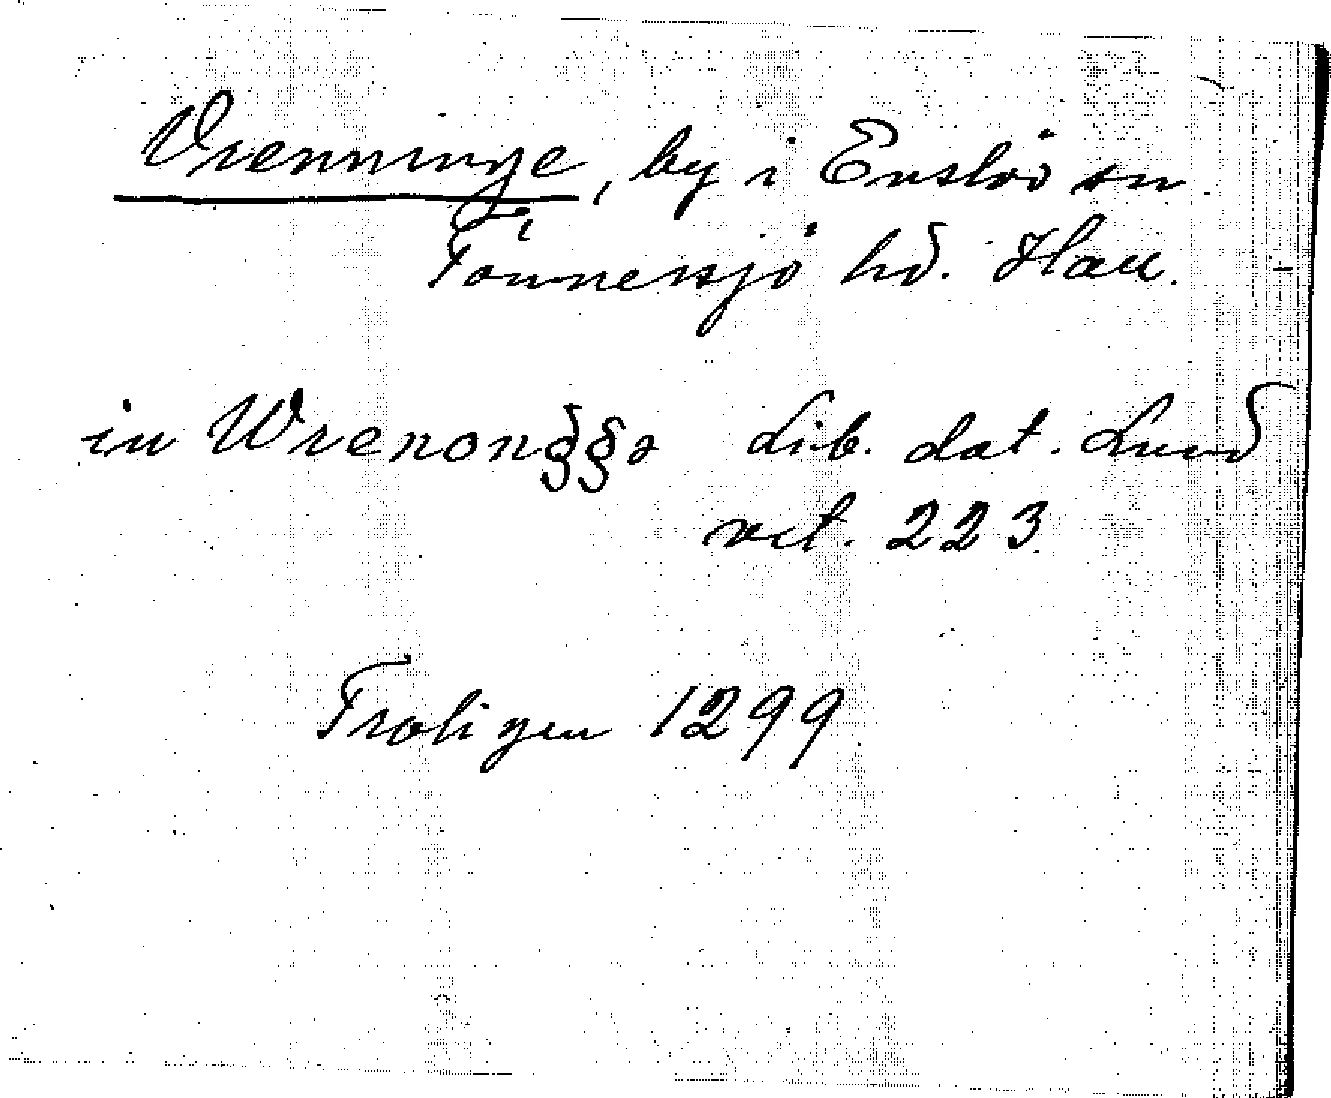 Vrenninge, by i Enslöv sn.
Tönnersjö hd. Hall.
in Wrenongge Lib. dat. Lund
vet. 223.
Troligen 1299